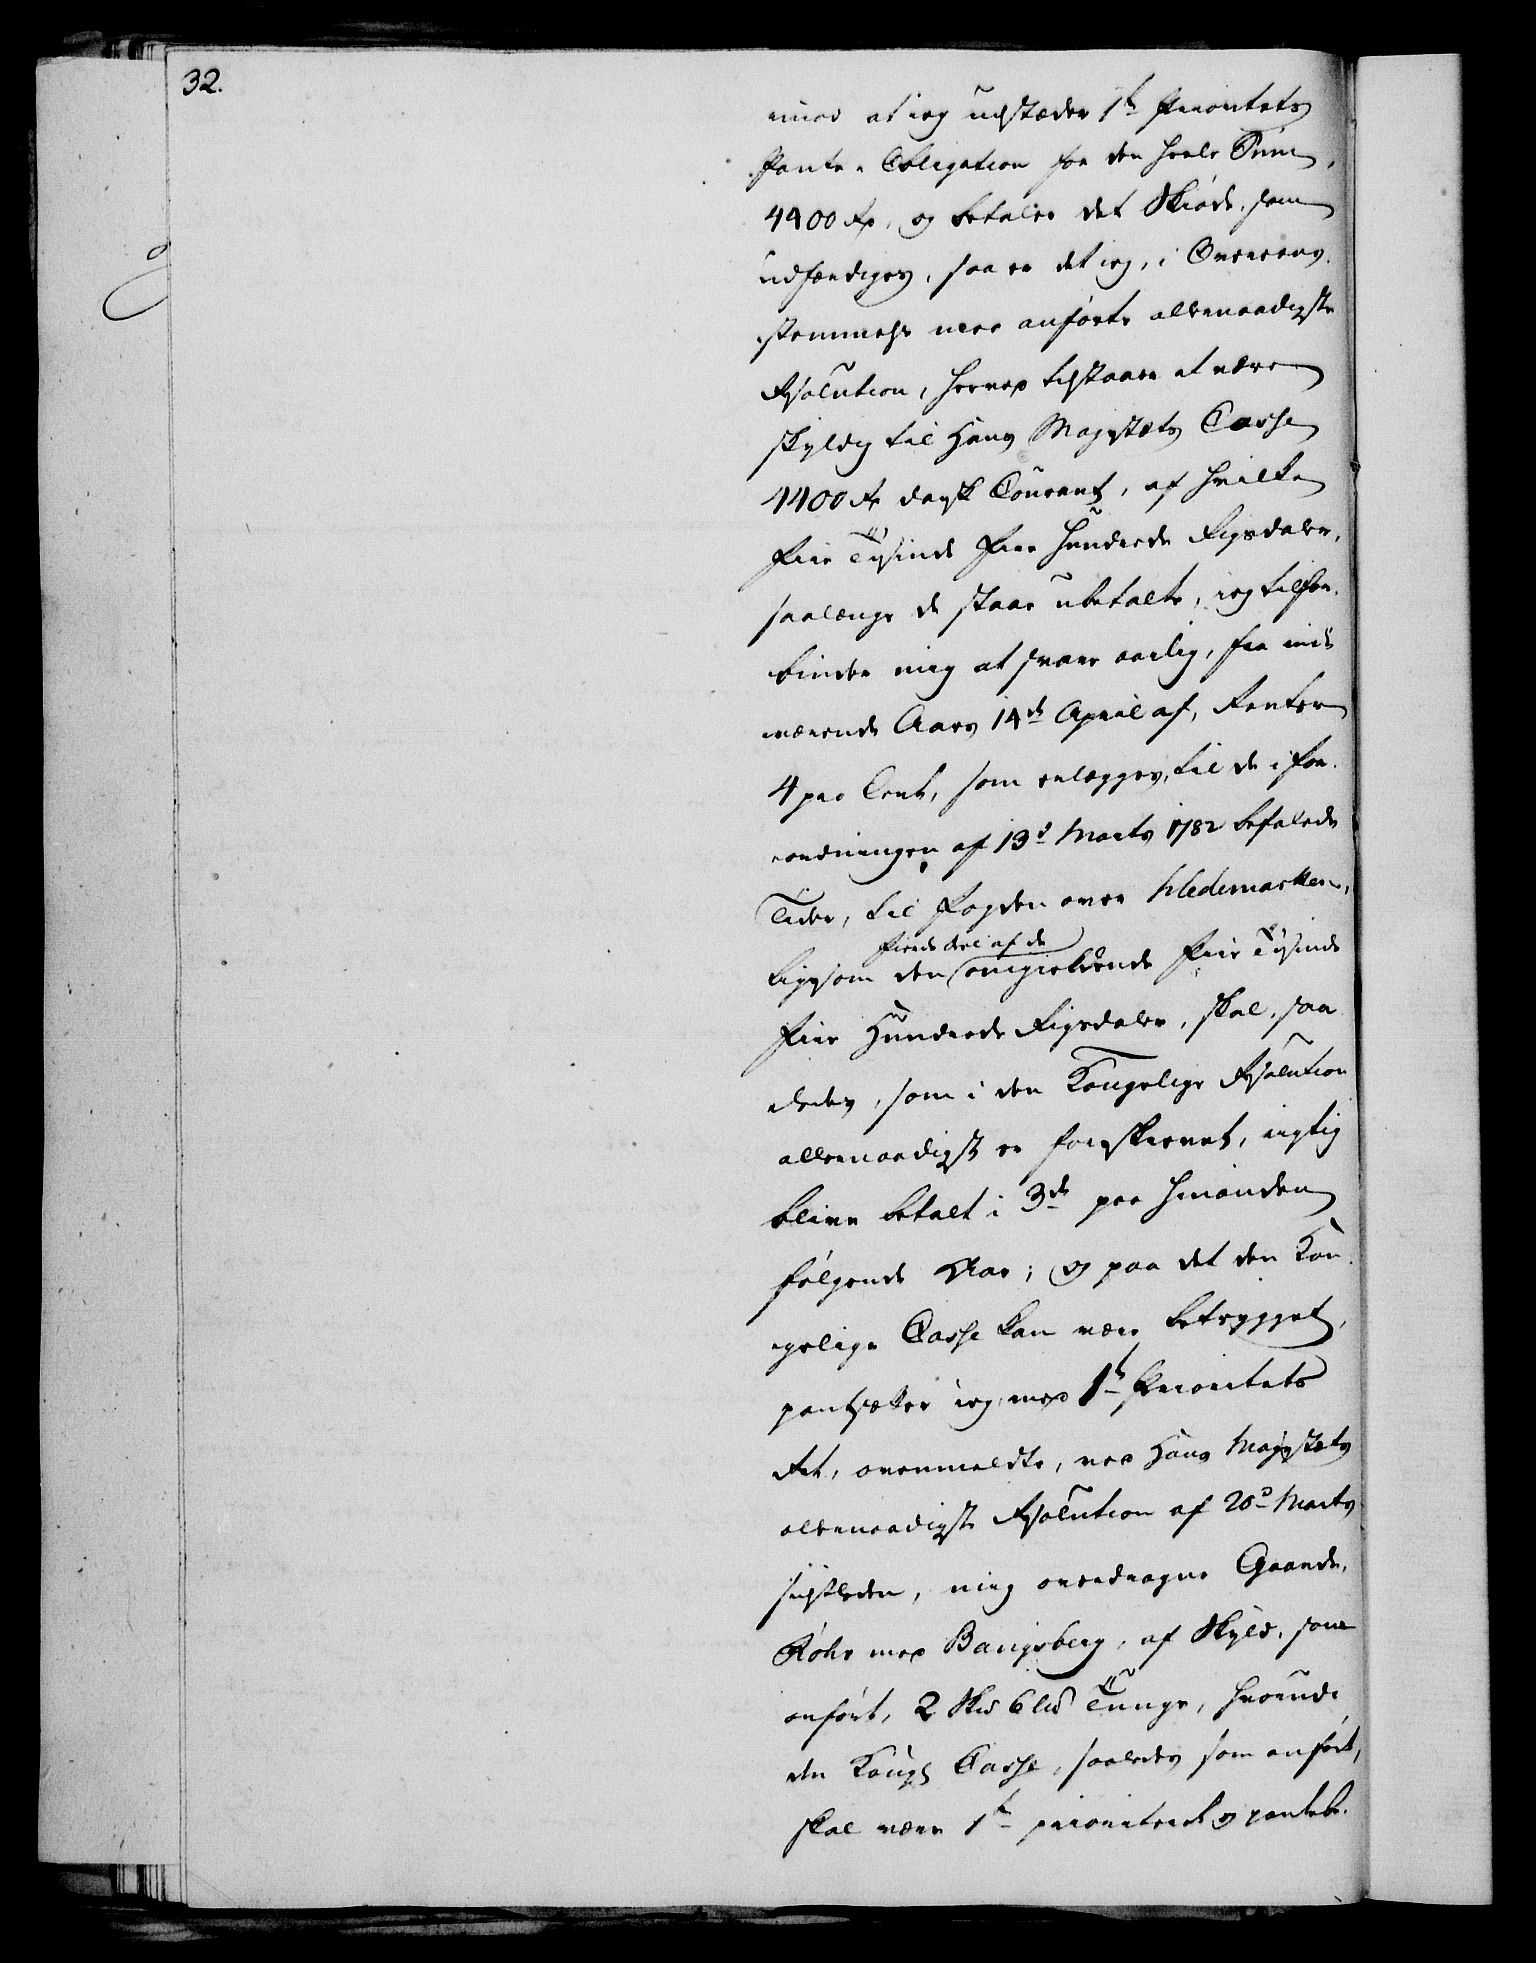 32.
imod at jeg udstæder 1te Prioritets
Pante-Obligation for den heele Sum,
4400 Rd, og betaler det Skiøde, som
udfærdiges, saa er det jeg, i Overeens-
stemmelse med anførte allernaadigste
Resolution, herved tilstaaer at være
skyldig til Hans Majestæts Casse
4400 Rd dansk Courant, af hvilke
Fiire Tusinde Fiire Hundrede Rigsdaler,
saalænge de staae ubetalte, jeg tilfor-
binder mig at svare aarlig, fra inde-
værende Aars 14de April af, Renter
4 pro Cent, som erlægges, til de i For-
ordningen af 13de Marts 1782 befalede
Tider, til Fogden over Hedemarken,
ligesom den fierde deel af de omgieldende Fiire Tusinde
Fiire Hundrede Rigsdaler, skal, saa-
ledes, som i den Kongelige Resolution
allernaadigst er foreskrevet, rigtig
blive betalt i 3de paa hinanden
følgende Aar; og paa det den Kon-
gelige Casse kan være betrygget,
pantsætter jeg, med 1te Prioritets
Ret, ovenmeldte, ved Hans Majestæts
allernaadigste Resolution af 20de Marts
sidstleden, mig overdragne Gaarde,
Kohr med Bangsberg, af Skyld, som
anført, 2 Skd 6 Lid Tunge, hvorudi
den Kongel Casse, saaledes som anført,
skal være 1te prioriteret og pantebe-